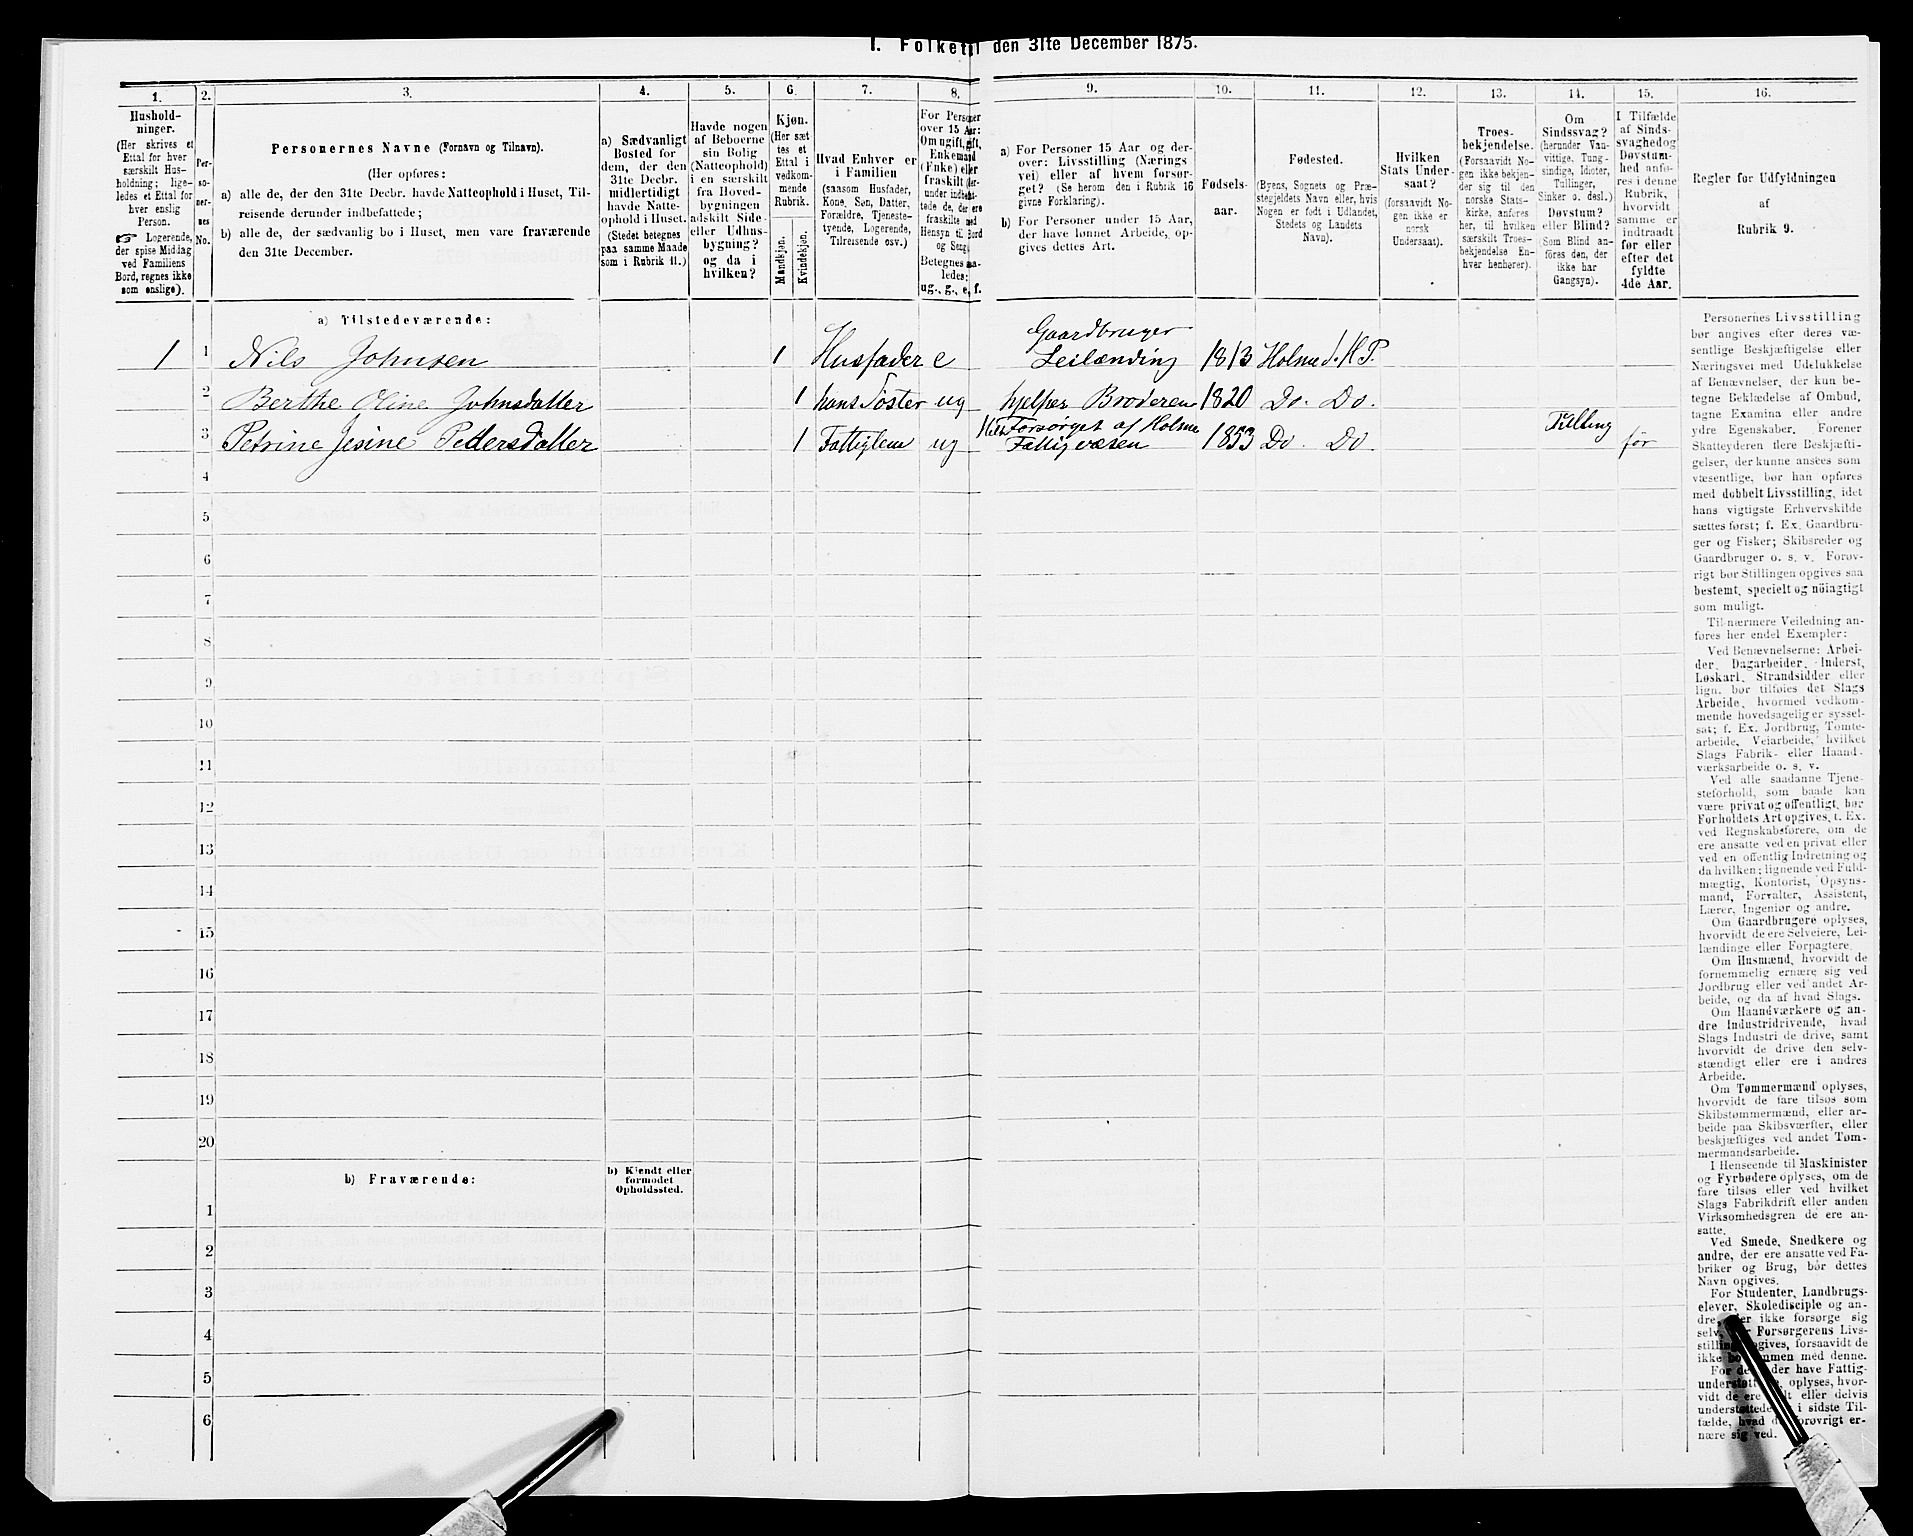 I. Folketæl den 31te December 1875.
1.
Hushold-
ninger.
(Her skrives et
Ettal for hver
særskilt Hus-
holdning; lige-
ledes et Ettal for
hver enslig
Person.
☞ Logerende,
der spise Middag
ved Familiens
Bord, regnes ikke
som enslige).
2.
Per-
so-
ner-
nes
No.
3.
Personernes Navne (Fornavn og Tilnavn).
(Her opføres:
a) alle de, der den 31te Decbr. havde Natteophold i Huset, Til-
reisende derunder indbefattede;
b) alle de, der sædvanlig bo i Huset, men vare fraværende
den 31te December.
4.
a) Sædvanligt
Bosted for
dem, der den
31te Decbr.
midlertidigt
havde Natte-
ophold i Huset.
(Stedet betegnes
paa samme Maade
som i Rubrik 11.)
5.
Havde nogen
af Beboerne
sin Bolig
(Natteophold)
i en særskilt
fra Hoved-
bygningen
adskilt Side-
eller Udhus-
bygning?
og da i
hvilken?
6.
Kjøn.
(Her sæt
tes et
Ettal i
vedkom-
mende
Rubrik.
Mandkjøn.
Kvindekjøn.
7.
Hvad Enhver er
i Familien
(saasom Husfader,
Kone, Søn, Datter,
Forældre, Tjeneste-
tyende, Logerende,
Tilreisende osv.)
8.
For Personer
over 15 Aar:
Om ugift, gift,
Enkemand
(Enke) eller
fraskilt
Hensyn til Bord
og Seng.
Betegnes saa-
ledes:
ug., g., e, f.
9.
a) For Personer 15 Aar og der-
over: Livsstilling (Nærings
vei) eller af hvem forsør-
get? (Se herom den i Rubrik 16
givne Forklaring).
b) For Personer under 15 Aar,
der have lønnet Arbeide, op-
gives dettes Art.
10.
Fødsels-
aar.
11.
Fødested.
(Byens, Sognets og Præ-
stegjeldets Navn eller, hvis
Nogen er født i Udlandet,
Stedets og Landets
Navn).
12.
Hvilken
Stats Under-
saat?
(forsaavidt No-
gen ikke er
norsk
Undersaat).
13.
Troes-
bekjendelse.
(Forsaavidt No-
gen ikke bekjen-
der sig til den
norske Stats-
kirke, anføres
her, til hvilken
særskilt Troes-
bekjendelse En-
hver henhører).
14.
Om
Sindssvag?
(herunder Van-
vittige, Tung-
sindige, Idioter,
Tullinger,
Sinker o. desl.)
Døvstum?
eller Blind?
(Som Blind an-
føres den, der
ikke har
Gangsyn).
15.
I Tilfælde
af Sinds-
svaghed og
Døvstum-
hed anfø-
res i denne
Rubrik,
hvorvidt
samme er
indtraadt
før eller
efter det
fyldte
4de Aar.
16.
Regler for Udfyldningen
af
Rubrik 9.
a) Tilstedeværende:
1 1 Nils Johnsen 1 Husfader e Gaardbruger
Leilænding 1813 Holme d. H. P.
2 Berthe Oline Johnsdatter 1 hans Søster ug hjelper Broderen 1820 Do. Do.
3 Petrine Jesine Pedersdatter 1 Fattiglem ug Forsørget af Holme
Fattigvæsen 1853 Do. Do. Tulling før
4
5
6
7
8
9
10
11
12
13
14
15
16
17
18
19
20
b) Fraværende:
b) Kjendt eller
formodet
Opholdssted.
1
2
3
4
5
6
Personernes Livsstilling
bør angives efter deres væ-
sentlige Beskjæftigelse eller
Næringsvei med Udelukkelse
af Benævnelser, der kun be-
tegne Beklædelse af Ombud,
tagne Examina eller andre
ydre Egenskaber. Forener
Skatteyderen flere Beskjæfti-
gelser, der kunne ansees som
væsentlige, bør han opføres
med dobbelt Livsstilling, idet
hans vigtigste Erhvervskilde
sættes først; f. Ex. Gaardbru-
ger og Fisker; Skibsreder og
Gaardbruger o. s. v. Forøv-
rigt bør Stillingen opgives saa
bestemt, specielt og nøiagtigt
som muligt.
Til nærmere Veiledning an-
føres her endel Exempler:
Ved Benævnelserne: Arbei-
der, Dagarbeider, Inderst,
Løskarl, Strandsidder eller
lign. bør tilføies det Slags
Arbeide, hvormed vedkom-
mende hovedsagelig er syssel-
sat; f. Ex. Jordbrug, Tomte-
arbeide, Veiarbeide, hvilket
Slags Fabrik- eller Haand-
værksarbeide o. s. v.
Ved alle saadanne Tjene-
steforhold, som baade kan
være privat og offentligt, bør
Forholdets Art opgives, f. Ex.
ved Regnskabsførere, om de
ere ansatte ved en privat eller
ved en offentlig Indretning og
da hvilken; lignende ved Fuld-
mægtig, Kontorist, Opsyns-
mand, Forvalter, Assistent,
Lærer, Ingeniør og andre.
Om Gaardbrugere oplyses,
hvorvidt de ere Selveiere, Lei-
lændinge eller Forpagtere.
Om Husmænd, hvorvidt de
fornemmelig ernære sig ved
Jordbrug eller ved andet Ar-
beide, og da af hvad Slags.
Om Haandværkere og an-
dre Industridrivende, hvad
Slags Industri de drive, samt
hvorvidt de drive den selv-
stændigt eller ere i andres
Arbeide.
Om Tømmermænd oplyses,
hvorvidt de fare tilsøs som
Skibstømmermænd, eller ar-
beide paa Skibsværfter, eller
beskjæftiges ved andet Tøm-
mermandsarbeide.
I Henseende til Maskinister
og Fyrbødere oplyses, om de
fare tilsøs eller ved hvilket
Slags Fabrikdrift eller anden
Virksomhedsgren de ere an-
satte.
Ved Smede, Snedkere og
andre, der ere ansatte ved Fa-
briker og Brug, bør dettes
Navn opgives.
For Studenter, Landbrugs-
elever, Skoledisciple og an-
dre, der ikke forsørge sig
selv, Forsørgerens Livs-
stilling opgives, forsaavidt de
ikke bo sammen med denne.
For de, der have Fattig-
understøttelse, oplyses, hvor-
vidt de ere helt eller delvis
understøttede, i sidste Til-
fælde, hvad de forøvrigt er-
nære sig ved.